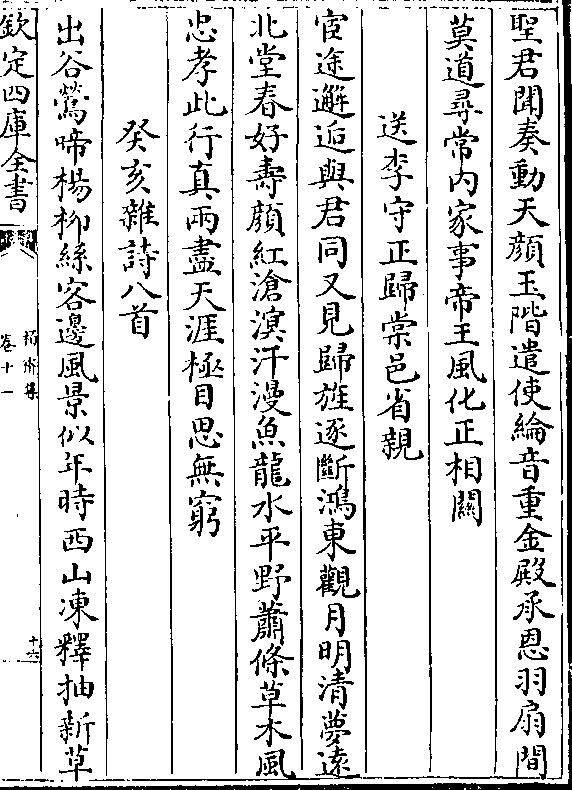 聖君聞奏動天顔玉階遣使綸音重金殿承恩羽扇間
莫道尋常内家事帝王風化正相關
送李守正歸棠邑省親
宦途邂逅與君同又見歸旌逐斷鴻東觀月明清夢遠
北堂春好壽顔紅滄溟汗漫魚龍水平野蕭條草木風
忠孝此行真兩盡天涯極目思無窮
癸亥雜詩八首
出谷鶯啼楊柳絲客邊風景似年時西山凍釋抽新草
欽定四庫全書
卷十一
十六